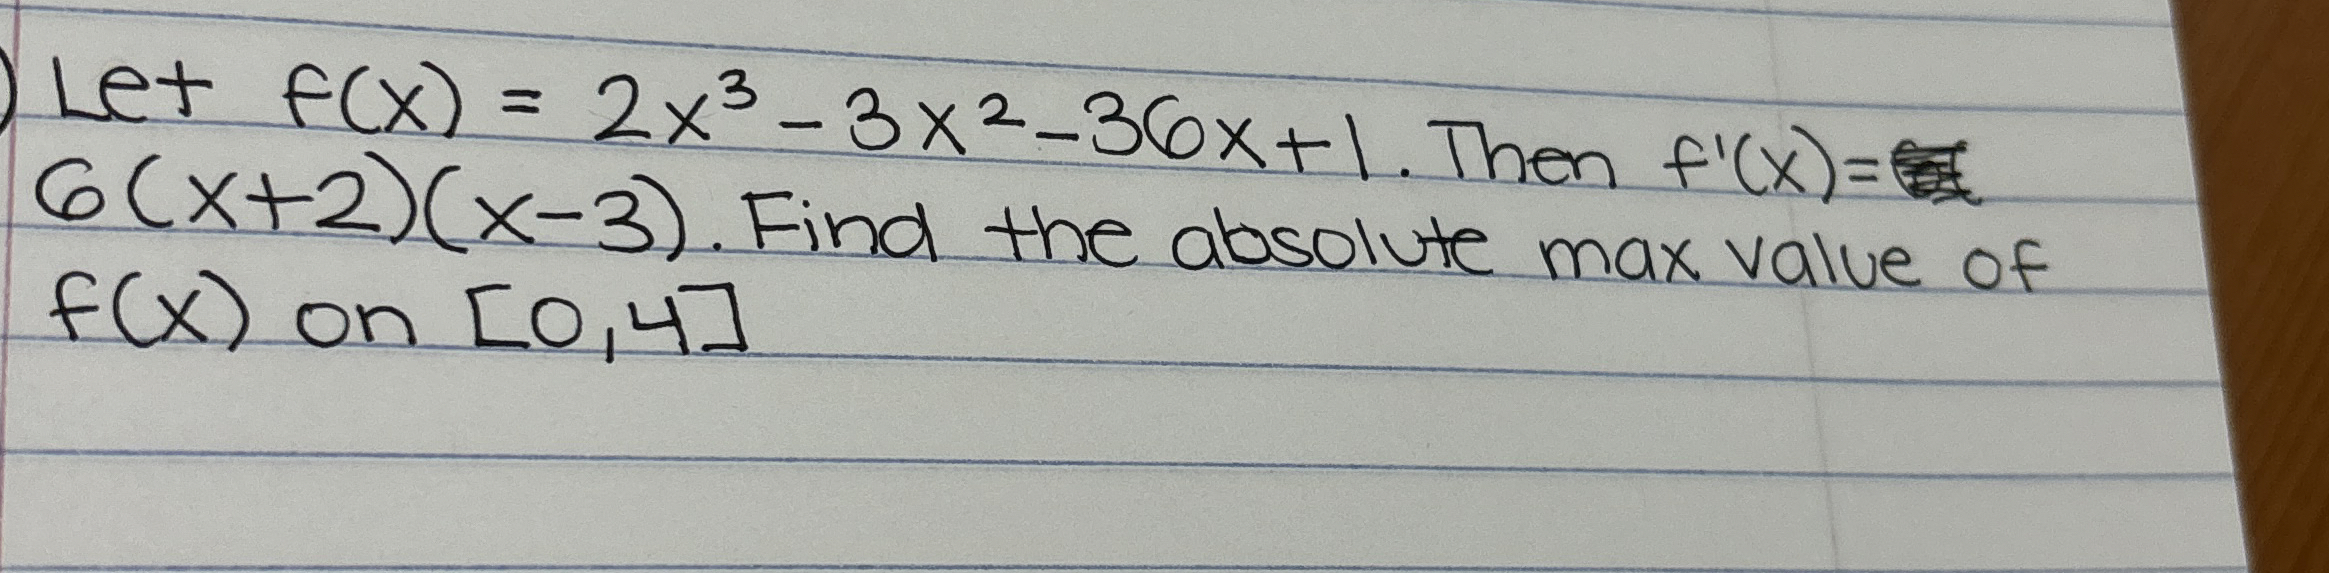 ) Let f(x) = 2x³ - 3x² - 36x + 1. Then f'(x) =
6(x+2)(x-3). Find the absolute max value of
f(x) on [0,4]